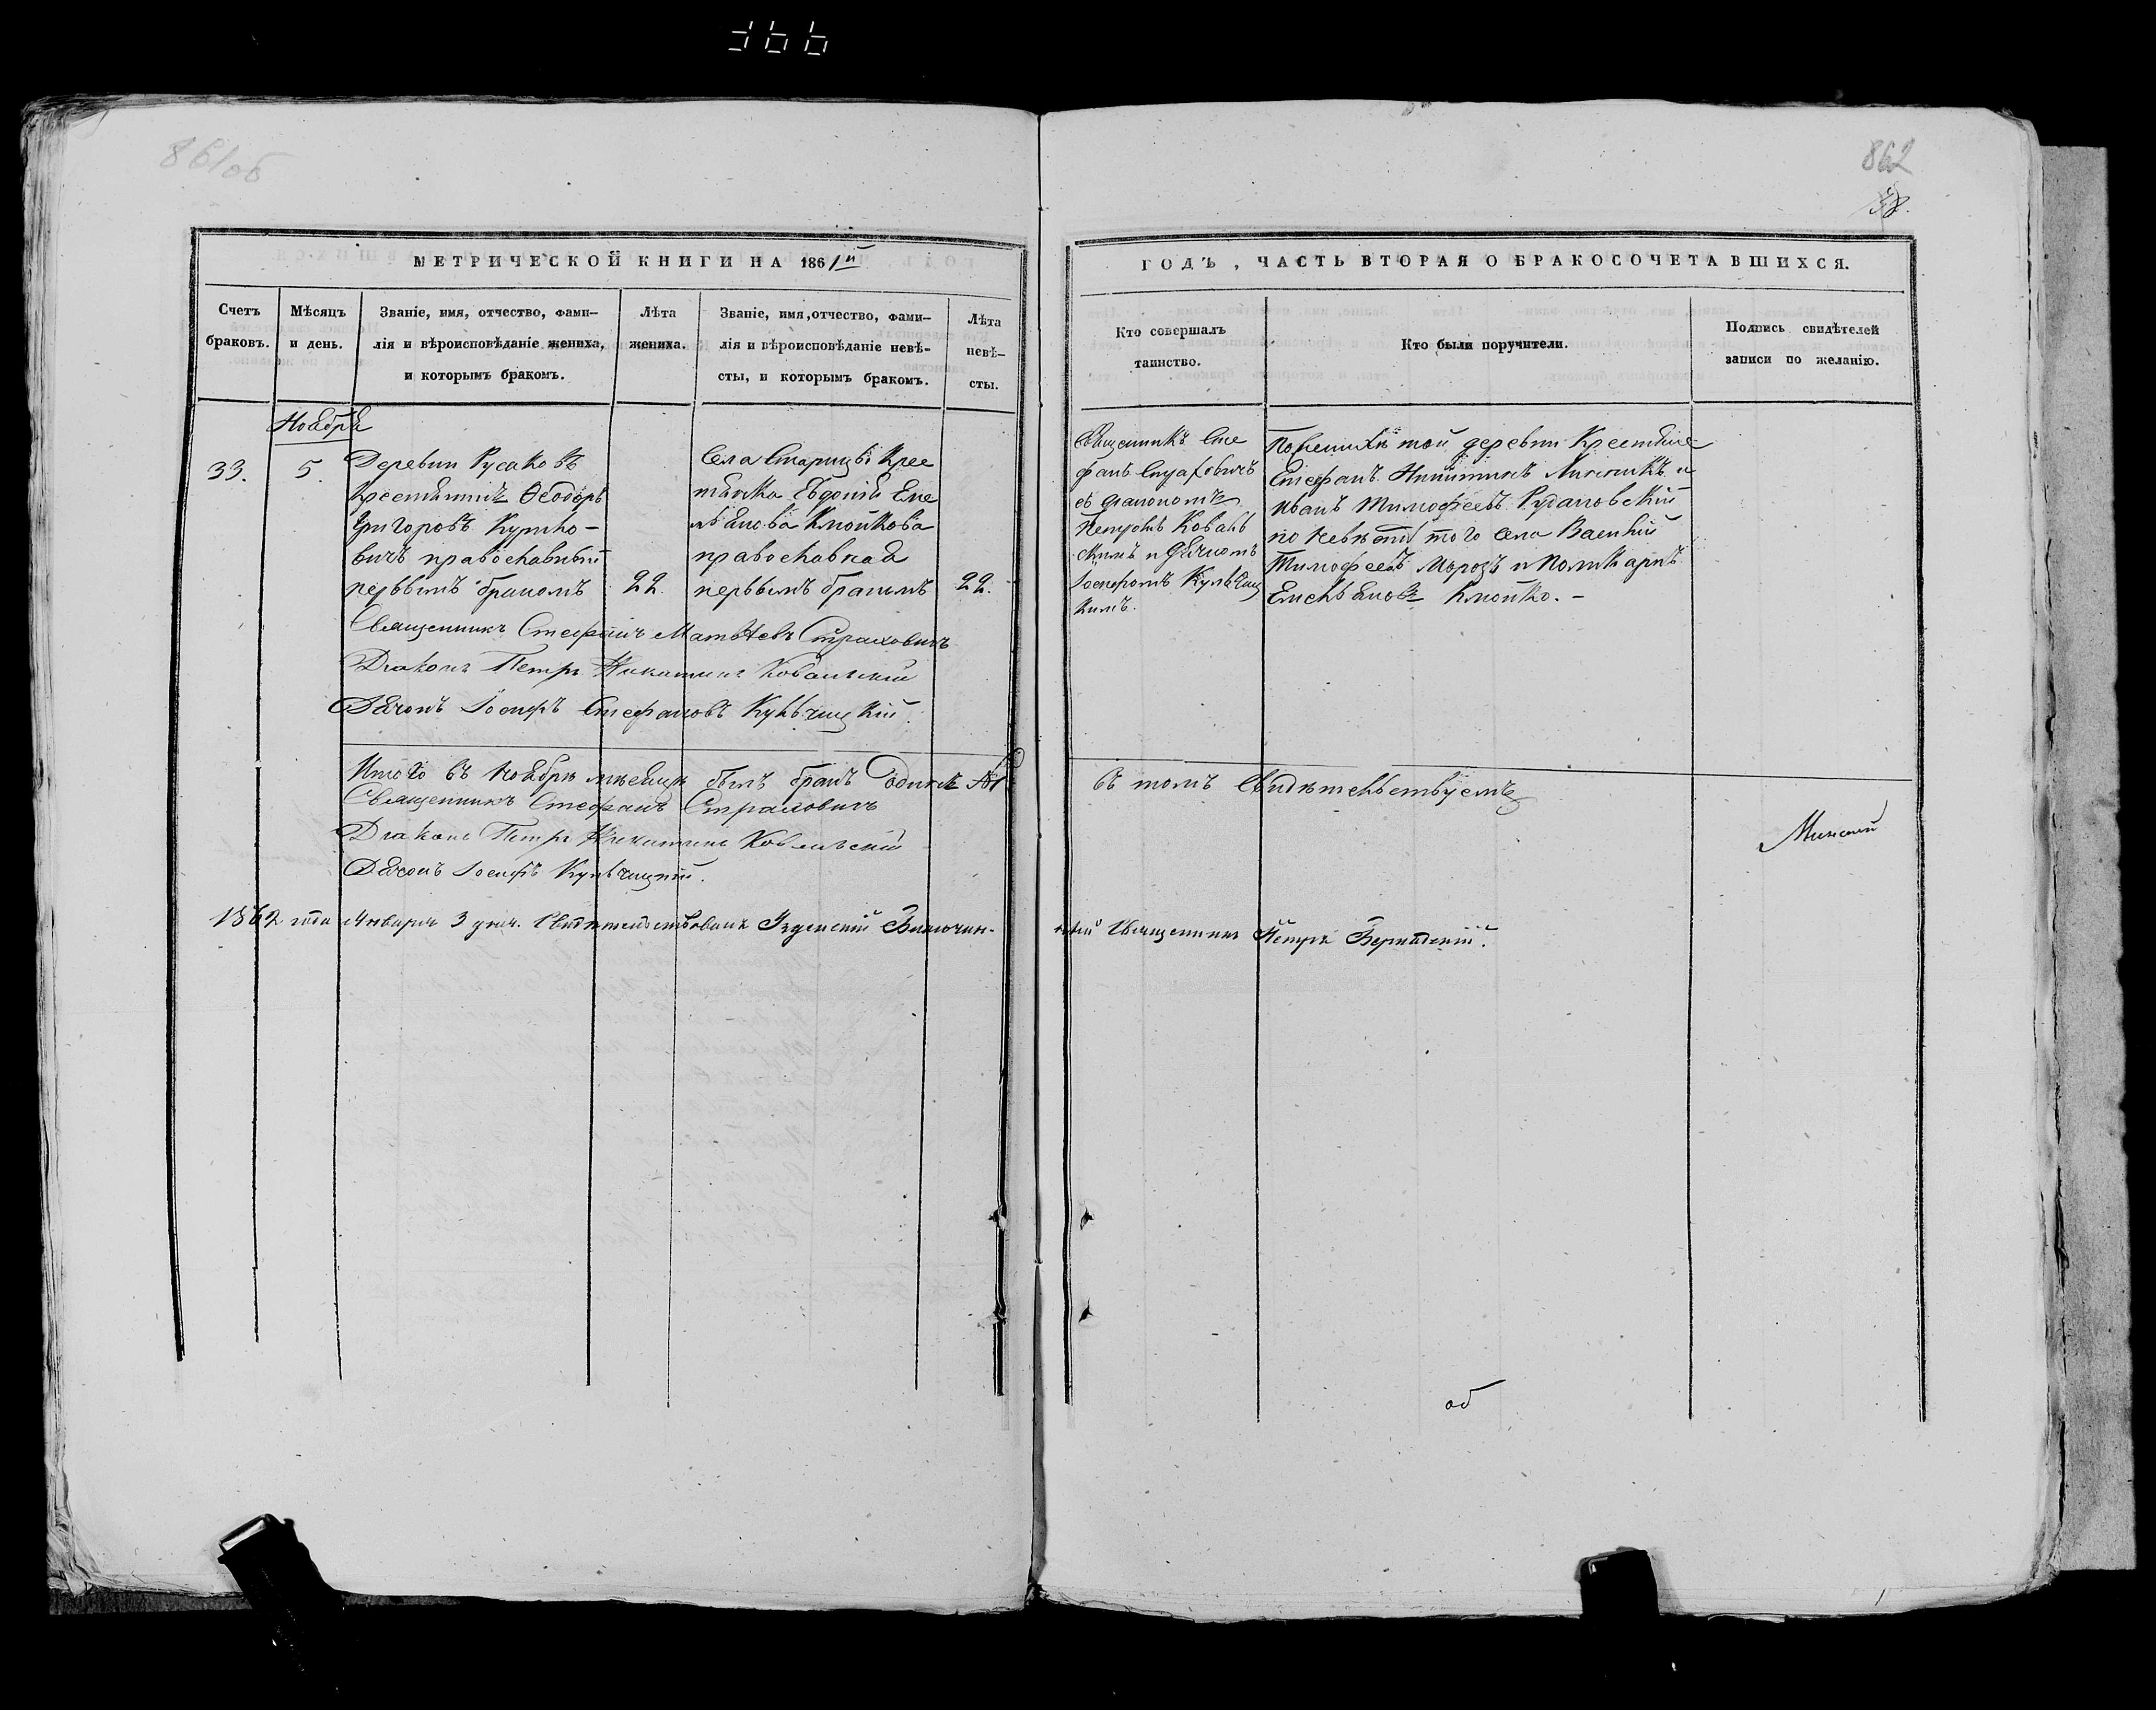 366
861об
862
38.
МЕТРИЧЕСКОЙ КНИГИ НА 1861й
ГОДЪ, ЧАСТЬ ВТОРАЯ О БРАКОСОЧЕТАВШИХСЯ.
Счетъ
браковъ.
Мѣсяцъ
и день.
Званіе, имя, отчество, фами-
лія и вѣроисповѣданіе жениха,
и которымъ бракомъ.
Лѣта
жениха.
Званіе, имя, отчество, фами-
лія и вѣроисповѣданіе невѣ-
сты, и которымъ бракомъ.
Лѣта
невѣ-
сты.
Кто совершалъ
таинство.
Кто были поручители.
Подпись свидѣтелей
записи по желанію.
Ноября
33.
5.
Деревни Русаковъ
Крестьянинъ Ѳеодоръ
Григоровъ Куртко-
вичъ православный
первымъ бракомъ
22.
Села Старицы Крес
тьянка Евдокія Еме
льянова Клюйкова
православная
первымъ бракомъ
22.
Священникъ Сте
фанъ Страховичъ
съ діакономъ
Петромъ Коваль
скимъ и дьячкомъ
Іосифомъ Кульчиц
кимъ.
По женихѣ той деревни Крестьяне
Стефанъ Никитинъ и
Иванъ Тимофеевъ Рудановскій
по невѣстѣ того села Василій
Тимофеевъ Морозъ и Поликарпъ
Емельяновъ Клюйко. -
Священникъ Стефанъ Матѳеевъ Страховичъ
Діаконъ Петръ Никитинъ Ковальскій
Дьячокъ Іосифъ Стефановъ Кульчицкій.
Итого въ Ноябрѣ мѣсяцѣ былъ бракъ Одинъ №1
въ томъ Свидѣтельствуемъ
Священникъ Стефанъ Страховичъ
Діаконъ Петръ Никитинъ Ковальскій
Дьячокъ Іосифъ Кульчицкій.
1862 года Января 3 дня. Свидѣтельствовалъ Узденскій Благочин-
ный Священникъ Петръ
об